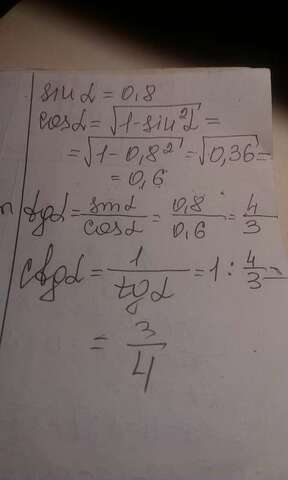 sin α = 0,8
cos α = √(1-sin²α) =
= √(1-0,8²) = √(0,36) =
= 0,6
tg α = sin α / cos α = 0,8 / 0,6 = 4/3
ctg α = 1 / tg α = 1 : 4/3 =
= 3/4